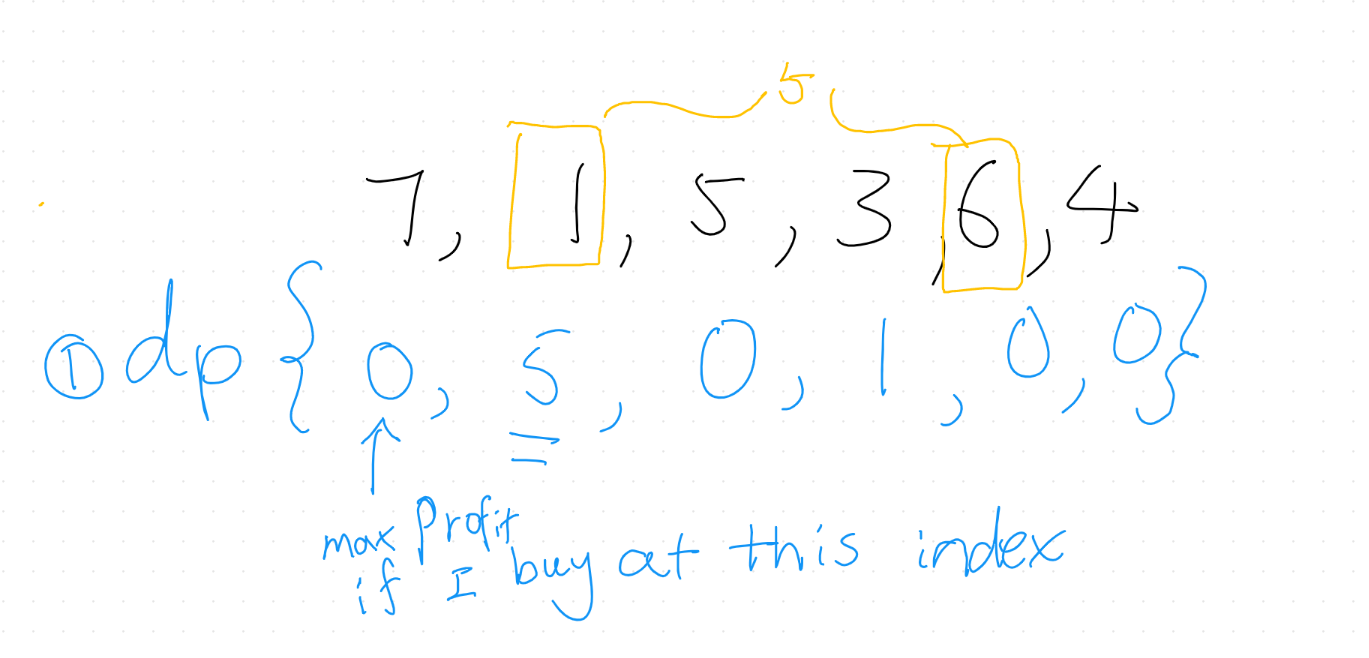 5
7, 1, 5, 3, 6, 4
① dp { 0, 5, 0, 1, 0, 0 }
max Profit
if I buy at this index